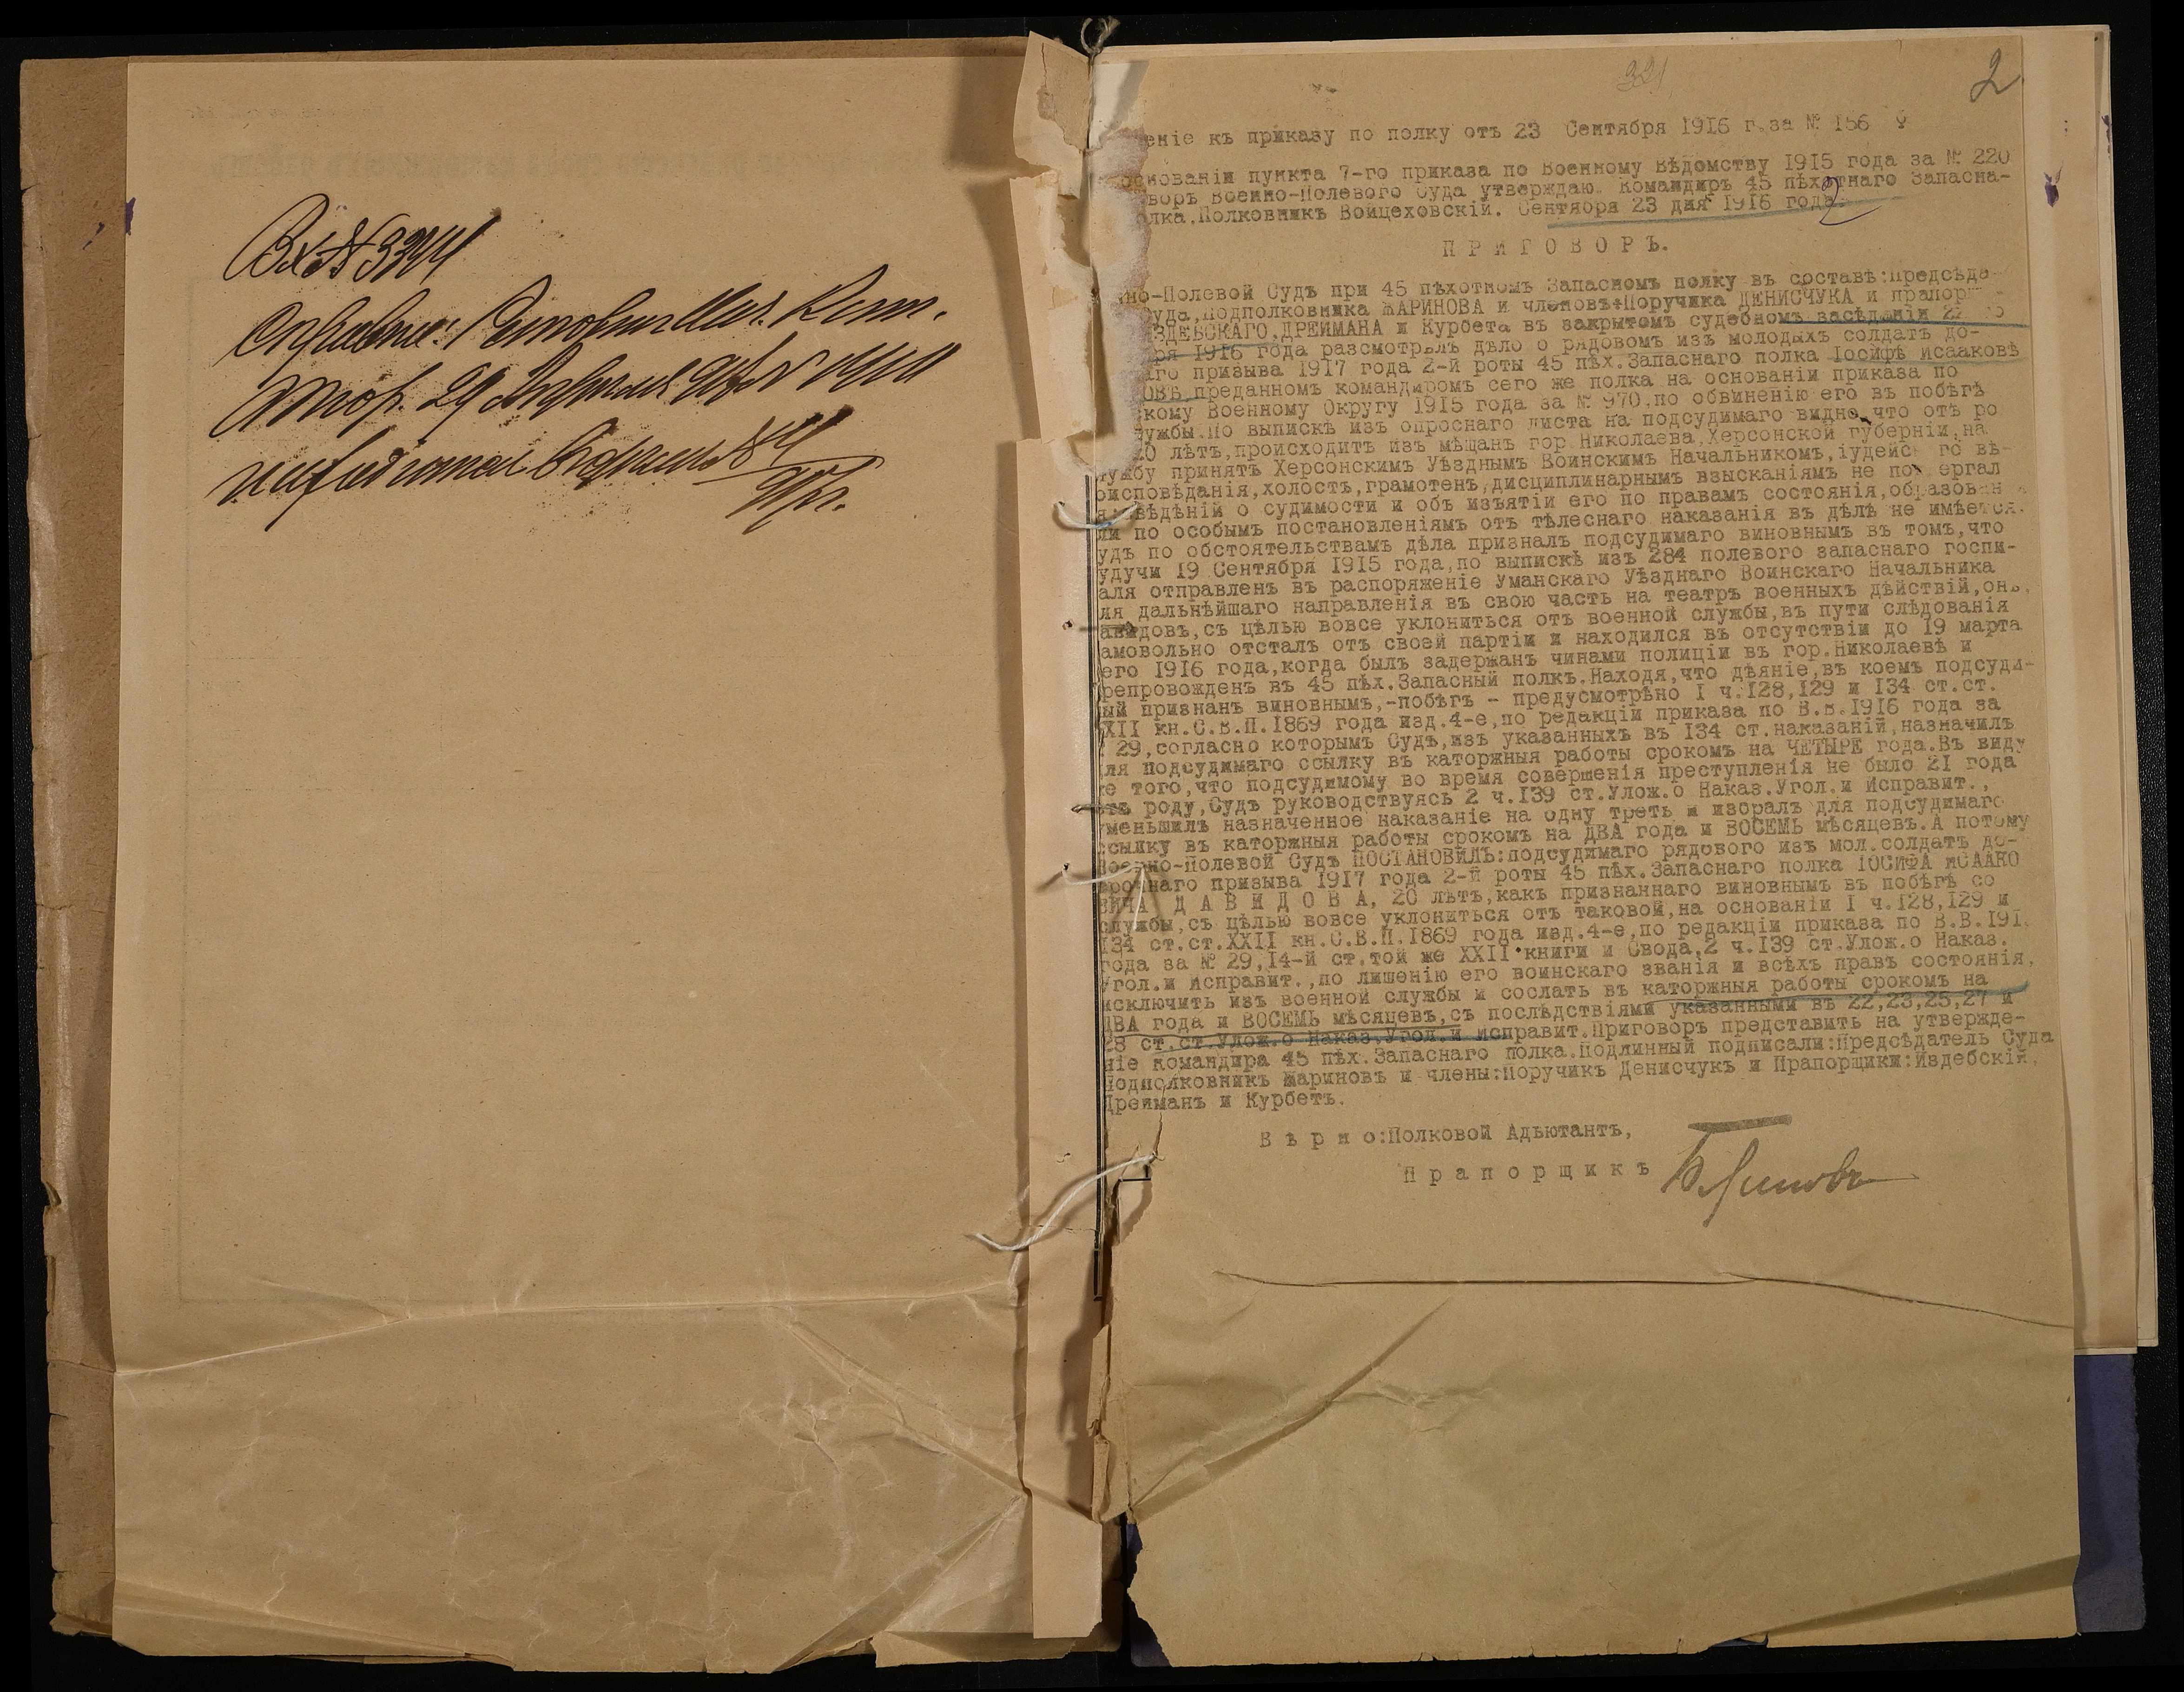 Вх № 3344
321
2
еніе къ приказу по полку отъ 23 Сентября 1916 г. за № 156
основаніи пункта 7-го приказа по Военному Вѣдомству 1915 года за № 220
воръ Военно-Полевого Суда утверждаю. Командиръ 45 пѣхотнаго Запасна-
олка, Полковникъ Войцеховскій. Сентября 23 дня 1916 года.
П Р И Г О В О Р Ъ.
но-Полевой Судъ при 45 пѣхотномъ Запасномъ полку въ составѣ: Предсѣда-
уда, Подполковника ЖАРИНОВА и членовъ: Поручика ДЕНИСЧУКА и прапор
ЗДЕБСКАГО, ДРЕЙМАНА и Курбета въ закрытомъ судебномъ засѣданіи 22
ря 1916 года разсмотрѣлъ дѣло о рядовомъ изъ молодыхъ солдатъ до-
аго призыва 1917 года 2-й роты 45 пѣх. Запаснаго полка Іосифѣ Исааковѣ
ОВѢ, преданномъ командиромъ сего же полка на основаніи приказа по
скому Военному Округу 1915 года за № 970, по обвиненію его въ побѣгѣ
ужбы. По выпискѣ изъ опроснаго листа на подсудимаго видно, что отъ ро
20 лѣтъ, происходитъ изъ мѣщанъ гор. Николаева, Херсонской губерніи, на
ужбу принятъ Херсонскимъ Уѣзднымъ Воинскимъ Начальникомъ, іудейс го вѣ-
оисповѣданія, холостъ, грамотенъ, дисциплинарнымъ взысканіямъ не по ергал
я: вѣдѣній о судимости и объ изъятіи его по правамъ состоянія, образован
ли по особымъ постановленіямъ отъ тѣлеснаго наказанія въ дѣлѣ не имѣется.
удъ по обстоятельствамъ дѣла призналъ подсудимаго виновнымъ въ томъ, что
удучи 19 Сентября 1915 года, по выпискѣ изъ 284 полевого запаснаго госпи-
аля отправленъ въ распоряженіе Уманскаго Уѣзднаго Воинскаго Начальника
ля дальнѣйшаго направленія въ свою часть на театръ военныхъ дѣйствій, онъ,
авидовъ, съ цѣлью вовсе уклониться отъ военной службы, въ пути слѣдованія
амовольно отсталъ отъ своей партіи и находился въ отсутствіи до 19 марта
его 1916 года, когда былъ задержанъ чинами полиціи въ гор. Николаевѣ и
репровожденъ въ 45 пѣх. Запасный полкъ. Находя, что дѣяніе, въ коемъ подсуди-
ый признанъ виновнымъ, -побѣгъ - предусмотрѣно I ч. 128, 129 и 134 ст.ст.
XII кн. С.В.П. 1869 года изд. 4-е, по редакціи приказа по В.В. 1916 года за
29, согласно которымъ Судъ, изъ указанныхъ въ 134 ст. наказаній, назначилъ
ля подсудимаго ссылку въ каторжныя работы срокомъ на ЧЕТЫРЕ года. Въ виду
е того, что подсудимому во время совершенія преступленія не было 21 года
тъ роду, Судъ руководствуясь 2 ч. 139 ст. Улож. о Наказ. Угол. и Исправит.,
уменьшилъ назначенное наказаніе на одну треть и избралъ для подсудимаго
ссылку въ каторжныя работы срокомъ на ДВА года и ВОСЕМЬ мѣсяцевъ. А потому
Военно-Полевой Судъ ПОСТАНОВИЛЪ: подсудимаго рядового изъ мол. солдатъ до-
срочнаго призыва 1917 года 2-й роты 45 пѣх. Запаснаго полка ІОСИФА ИСААКО
ВИЧА Д А В И Д О В А, 20 лѣтъ, какъ признаннаго виновнымъ въ побѣгѣ со
службы, съ цѣлью вовсе уклониться отъ таковой, на основаніи I ч. 128, 129 и
134 ст.ст. XXII кн. С.В.П. 1869 года изд. 4-е, по редакціи приказа по В.В. 191
года за № 29, 14-й ст. той же XXII книги и Свода, 2 ч. 139 ст. Улож. о Наказ.
Угол. и Исправит., по лишенію его воинскаго званія и всѣхъ правъ состоянія,
исключить изъ военной службы и сослать въ каторжныя работы срокомъ на
ДВА года и ВОСЕМЬ мѣсяцевъ, съ послѣдствіями указанными въ 22, 23, 25, 27 и
28 ст.ст. Улож. о Наказ. Угол. и Исправит. Приговоръ представить на утвержде-
ніе Командира 45 пѣх. Запаснаго полка. Подлинный подписали: Предсѣдатель Суда
Подполковникъ Жариновъ и члены: Поручикъ Денисчукъ и Прапорщики: Издебскій,
Дрейманъ и Курбетъ.
В ѣ р н о: Полковой Адъютантъ,
П р а п о р щ и к ъ